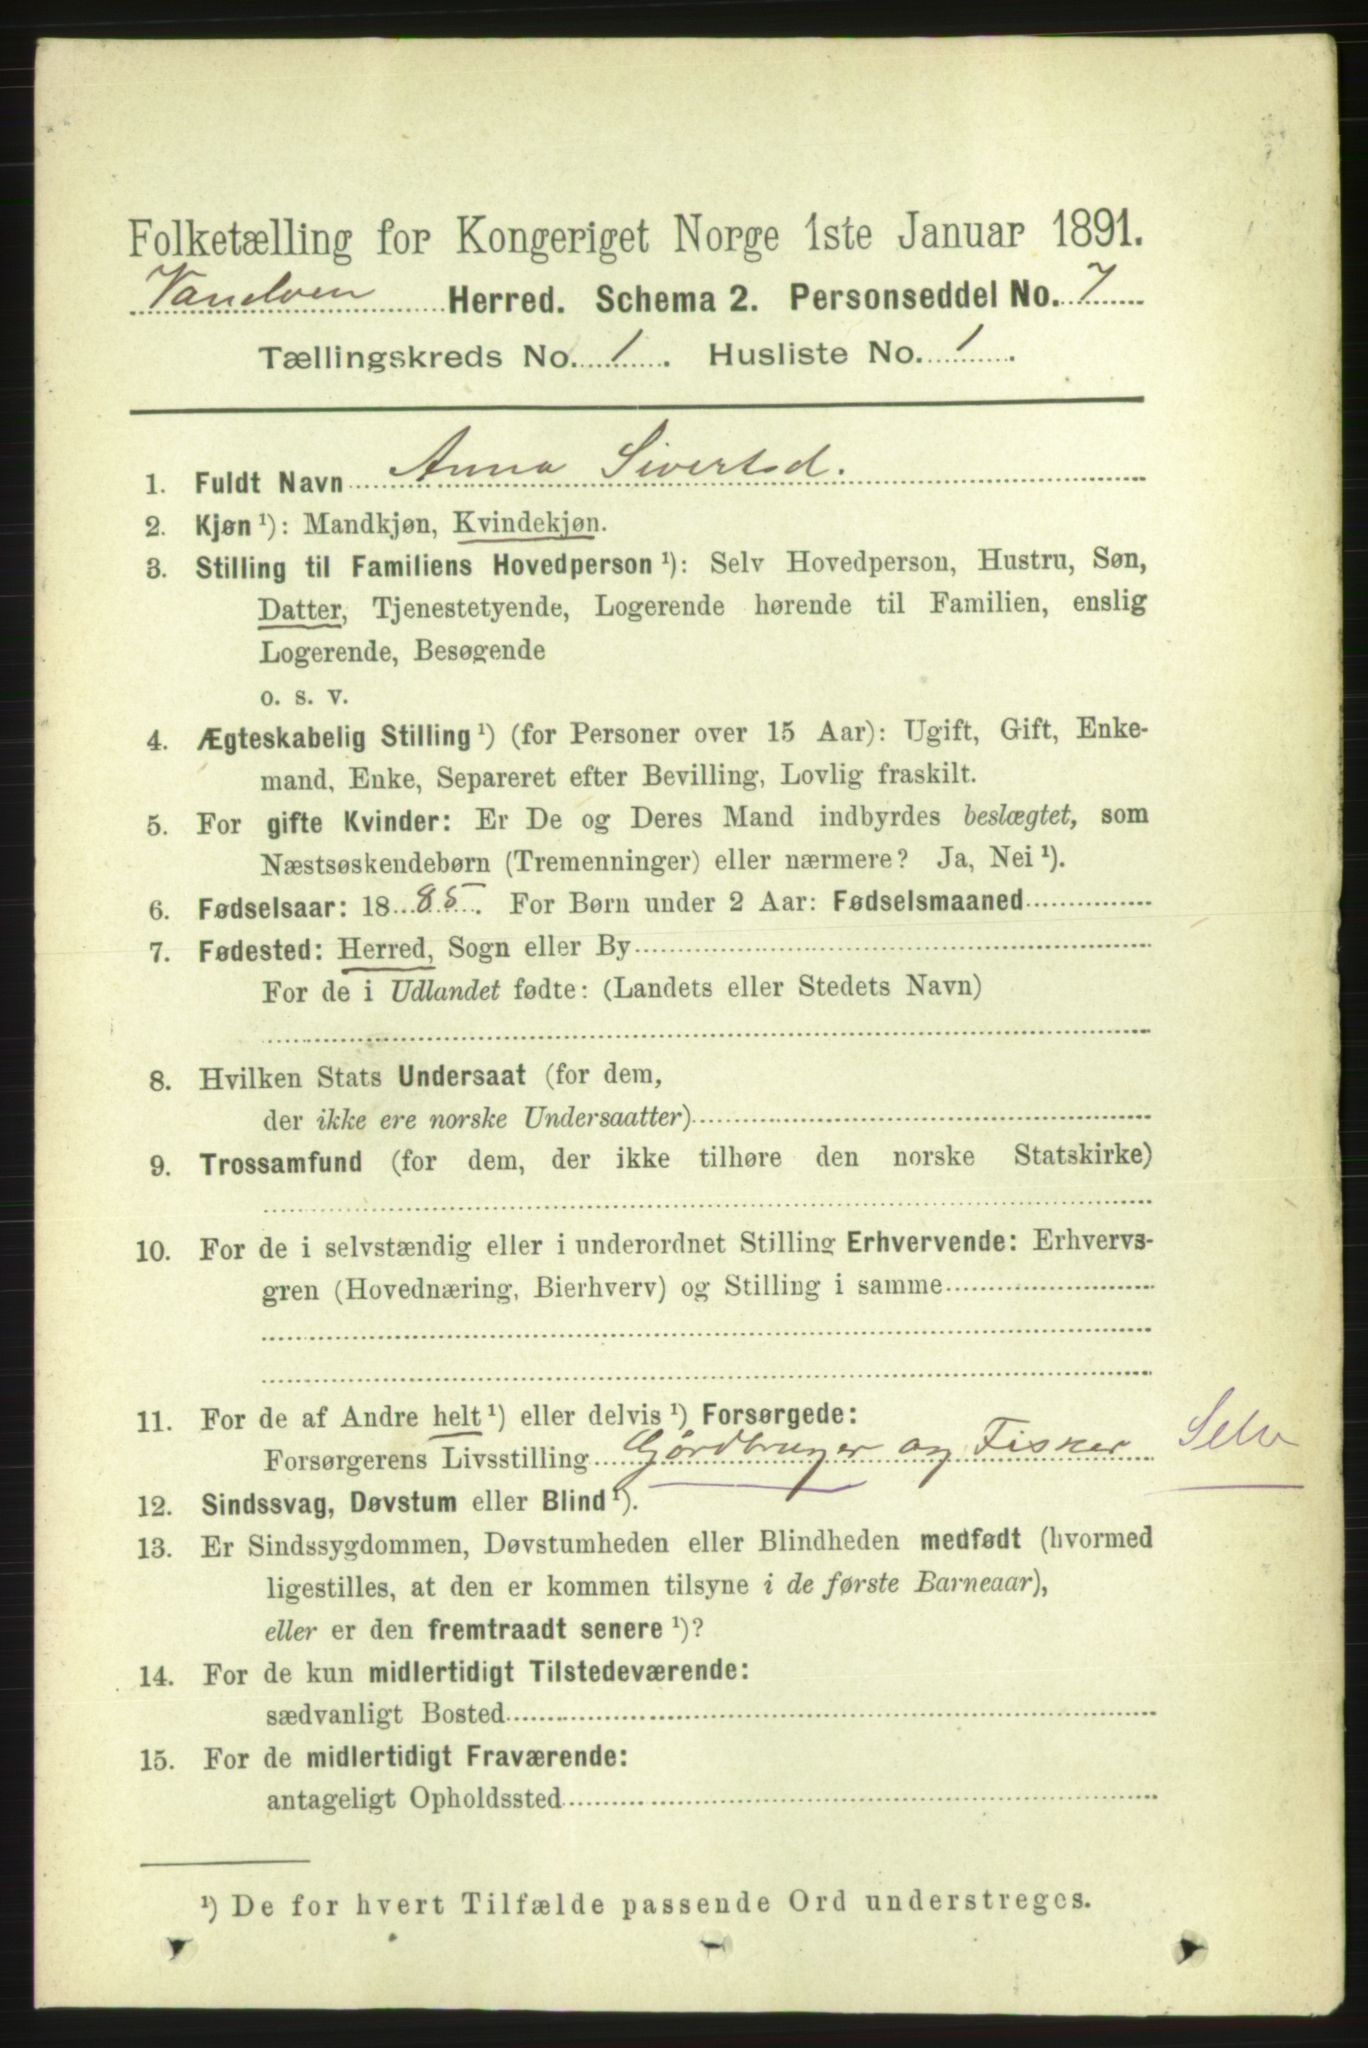 Folketælling for Kongeriget Norge 1ste Januar 1891.
Vanelven Herred. Schema 2. Personseddel No. 7
Tællingskreds No. 1. Husliste No. 1.
1. Fuldt Navn Anna Sivertsd.
2. Kjøn ¹): Mandkjøn, Kvindekjøn.
3. Stilling til Familiens Hovedperson ¹): Selv Hovedperson, Hustru, Søn,
Datter, Tjenestetyende, Logerende hørende til Familien, enslig
Logerende, Besøgende
o. s. v.
4. Ægteskabelig Stilling ¹) (for Personer over 15 Aar): Ugift, Gift, Enke-
mand, Enke, Separeret efter Bevilling, Lovlig fraskilt.
5. For gifte Kvinder: Er De og Deres Mand indbyrdes beslægtet, som
Næstsøskendebørn (Tremenninger) eller nærmere? Ja, Nei ¹).
6. Fødselsaar: 1885. For Børn under 2 Aar: Fødselsmaaned
7. Fødested: Herred, Sogn eller By
For de i Udlandet fødte: (Landets eller Stedets Navn)
8. Hvilken Stats Undersaat (for dem,
der ikke ere norske Undersaatter)
9. Trossamfund (for dem, der ikke tilhøre den norske Statskirke)
10. For de i selvstændig eller i underordnet Stilling Erhvervende: Erhvervs-
gren (Hovednæring, Bierhverv) og Stilling i samme
11. For de af Andre helt ¹) eller delvis ¹) Forsørgede:
Forsørgerens Livsstilling Gårdbruger og Fisker Selv
12. Sindssvag, Døvstum eller Blind ¹).
13. Er Sindssygdommen, Døvstumheden eller Blindheden medfødt (hvormed
ligestilles, at den er kommen tilsyne i de første Barneaar),
eller er den fremtraadt senere ¹)?
14. For de kun midlertidigt Tilstedeværende:
sædvanligt Bosted
15. For de midlertidigt Fraværende:
antageligt Opholdssted
¹) De for hvert Tilfælde passende Ord understreges.